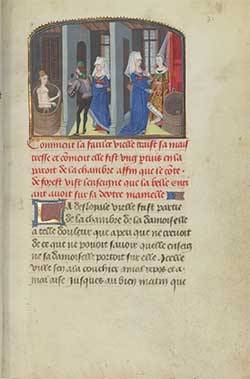 Comment la faulse vielle traist sa mais
tresse et coment elle fist vng ptuis en la
paroit de la chambre affin que le cote
de forest vist lenseigne que la belle euri
ant auoit sur sa dextre mamelle
La desloiale vielle fust partie
de la chambre de la damoiselle
a telle douleur que apeu que ne creuoit
de ce que ne pouoit sauoir quelle enseig
ne sa damoiselle portoit sur elle. Icelle
vielle sen ala coucher a mal repos et a
mal aise Jusques au bien matin que